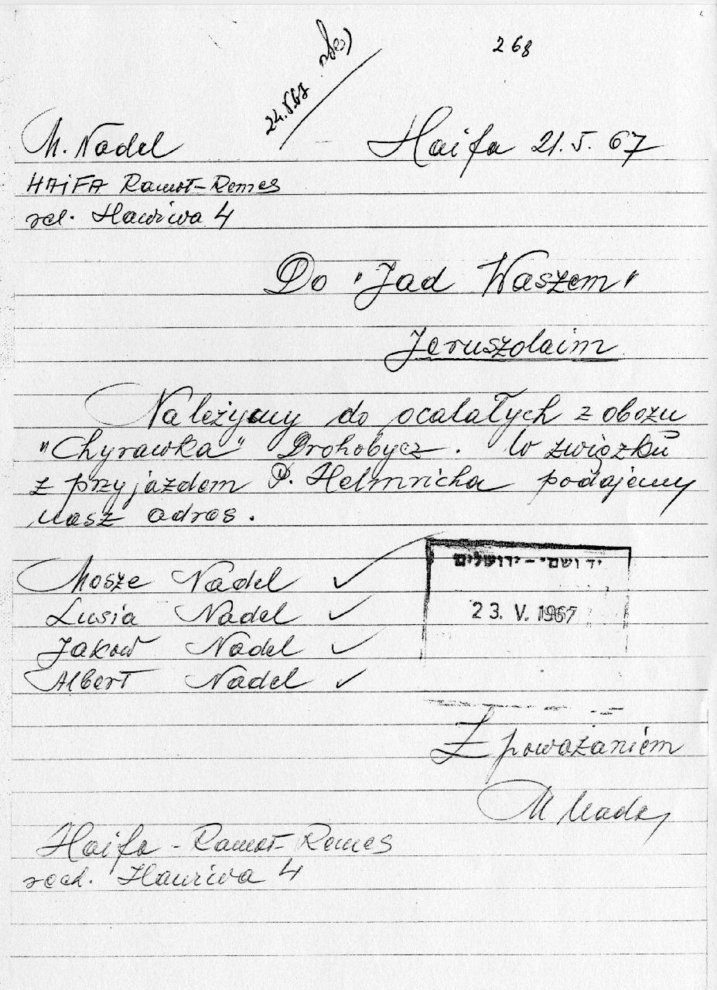 268
24.5.67
M. Nadel
Haifa 21.5.67
HAiFA Ramot-Remes
Hawiwa 4
Do "Jad Waszem"
Jeruszolaim
Należymy do ocalałych z obozu
"Chyrawka" Drohobycz. W związku
z przyjazdem P. Helmricha podajemy
nasz adres.
Mosze Nadel ✓
Lusia Nadel ✓
Jakow Nadel ✓
Albert Nadel ✓
יד ושם - ירושלים
23. V. 1967
Z poważaniem
M Nadel
Haifa - Ramot-Remes
4